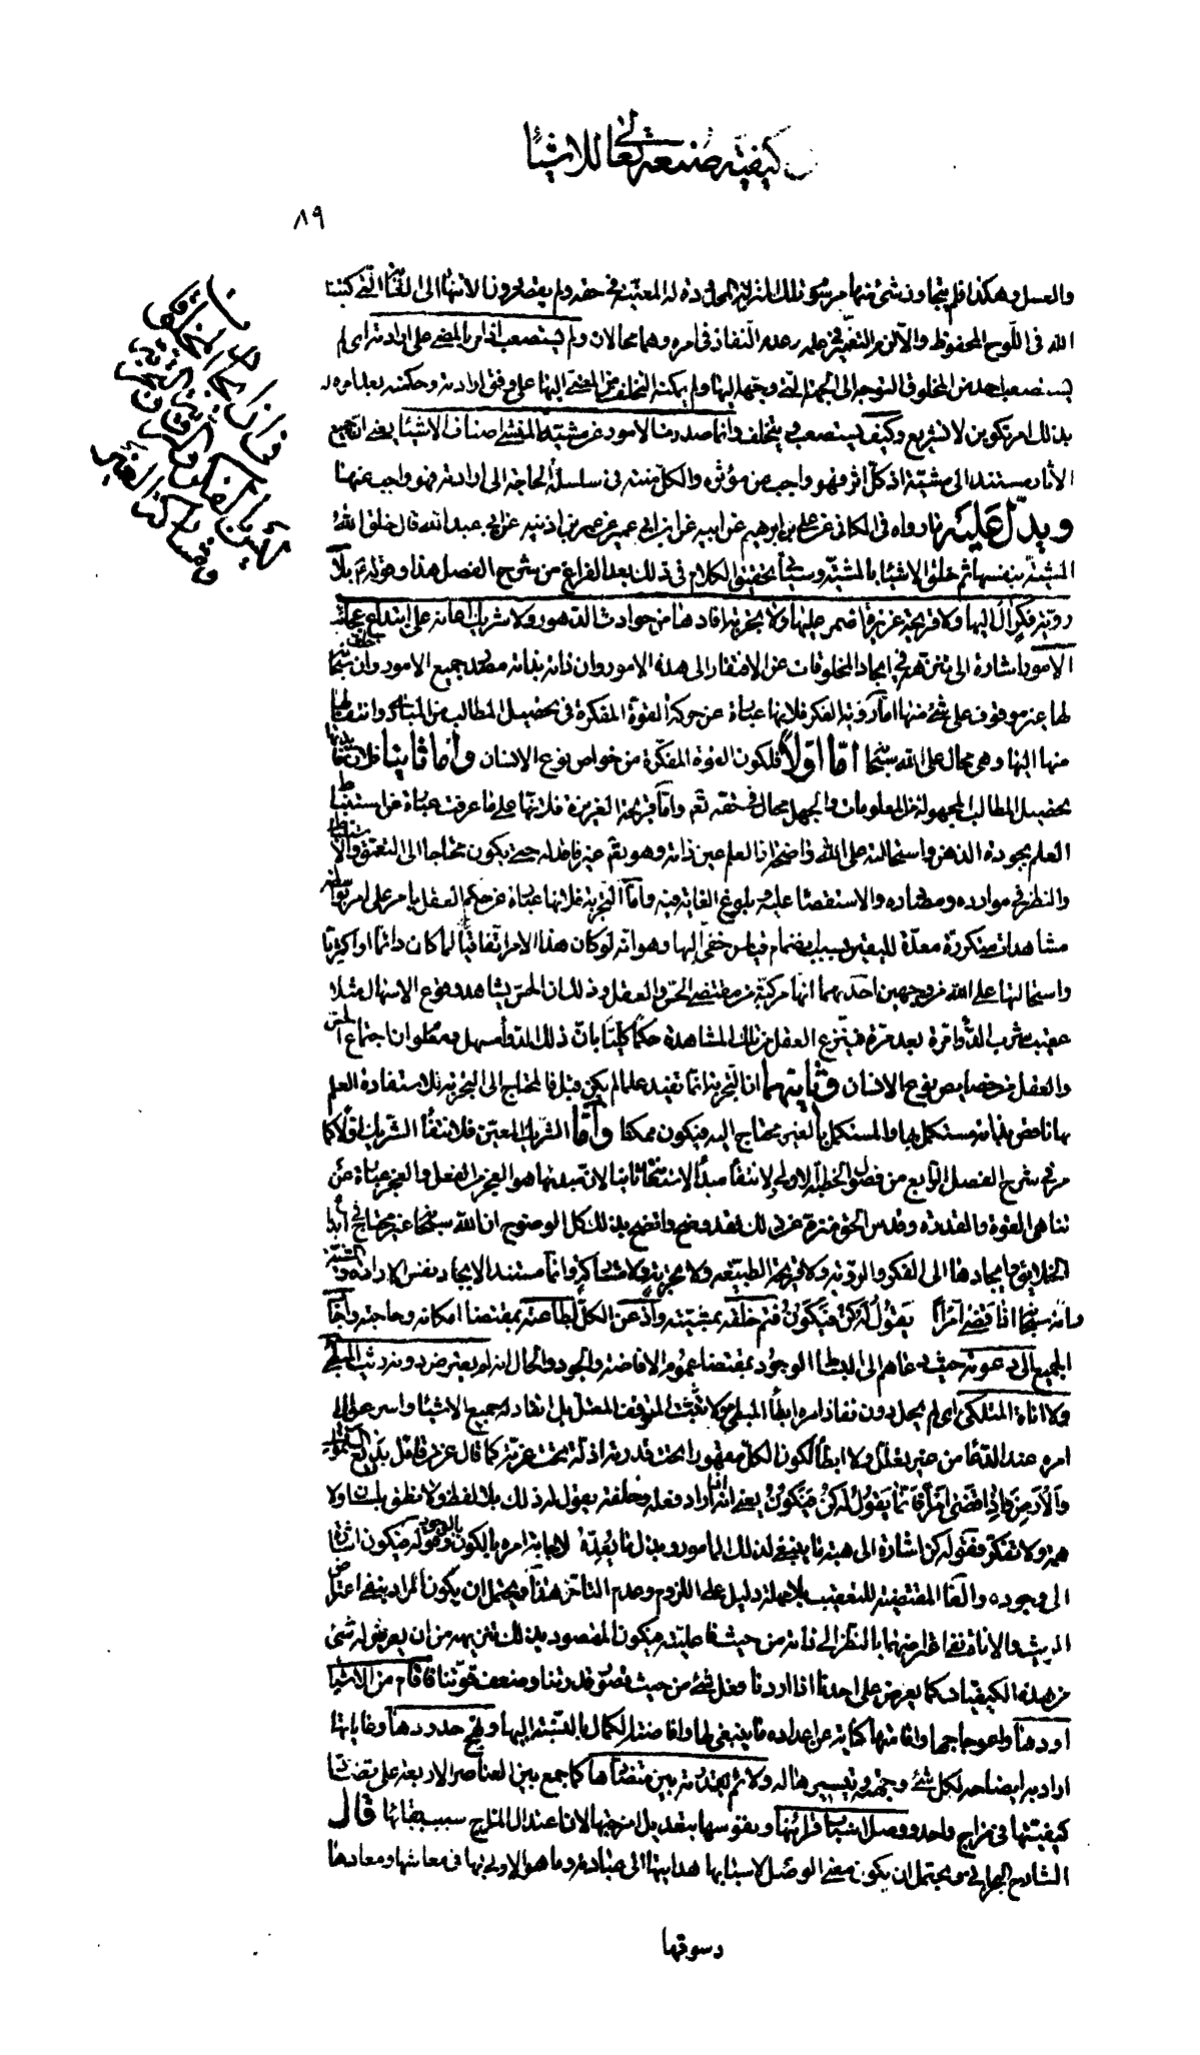 كيفية صنعه تعالى للاشيآء
٨٩
والعسل وهكذا فلم يتجاوز شئ منها مرسوم تلك المنزلة المحدودة له المعيّنة في حقه ولم يقصر دون الانتهاء الى الغاية التي كتبت
الله في اللّوح المحفوظ والّا لزم التغيّر في علمه وعدم النفاذ في امره وهما محالان ولم يستصعب اذ امر بالمضي على ارادته اى لم
يستصعب احد من المخلوق التوجه الى الجهة الّتي وجّهه اليها ولم يمكنه التخلف من المضيّ اليها على وفق ارادته وحكمته بعد امره له
بذلك امر تكوين لا تشريع وكيف يستصعب ويتخلف وانما صدرت الامور عن مشيّته المنشئ اصناف الاشيآء يعني ان جميع
الآثار مستند الى مشيّته اذ كلّ اثر فهو واجب عن مؤثره والكلّ منته في سلسلة الحاجة الى ارادته فهو واجب عنها
ويدلّ عليه ما رواه في الكافي عن علي بن ابرهيم عن ابيه عن ابن ابي عمير عن عمر بن اذينه عن ابي عبد الله قال خلق الله
المشيّة بنفسها ثم خلق الاشيآء بالمشيّة وسيجئ تحقيق الكلام في ذلك بعد الفراغ من شرح الفصل هذا وقوله بلا
رويّة فكر آل اليها ولا قريحة غريزة اضمر عليها ولا تجربة افادها من حوادث الدهور ولا شريك اعانه على ابتداع عجائب
الامور اشارة الى تنزّهه في ايجاد المخلوقات عن الافتقار الى هذه الامور وان ذاته بذاته مصدر جميع الامور وان خلقه سبحانه
لها غير موقوف على شئ منها امّا رويّة الفكر فلانها عبارة عن حركة القوة المفكرة في تحصيل المطالب من المبادى وانتقالها
منها اليها وهي محال على الله سبحانه امّا اوّلاً فلكون القوة المفكّرة من خواص نوع الانسان وأما ثانيا فلانّ فائدتها
تحصيل المطالب المجهولة من المعلومات والجهل محال في حقه تعم وامّا قريحة الغريزة فلانّها على ما عرفت عبارة عن استنباط
العلم بجودة الذهن واستحالته على الله واضحة اذ العلم عين ذاته وهو تعم غير فاقد له حتى يكون محتاجا الى التعمق والاستنباط
والنظر في موارده ومصادره والاستقصاء عليه وبلوغ الغاية فيه وامّا التجربة فلانّها عبارة عن حكم العقل بامر على امر بواسطة
مشاهدات متكررة معدّة لليقين بسبب انضمام قياس خفيّ اليها وهو انه لو كان هذا الامر اتّفاقيّا لما كان دائما او اكثريّا
واستحالتها على الله من وجهين احدهما انّها مركبة من مقتضى الحس والعقل وذلك ان الحسّ يشاهد وقوع الاسهال مثلا
عقيب شرب الدّواء مرّة بعد مرّة فينتزع العقل من تلك المشاهدة حكما كليّا بانّ ذلك الدواء مسهل ومعلوم ان اجتماع الحسّ
والعقل من خصايص نوع الانسان وثانيهما ان التجربة انّما تفيد علما لم يكن قبل فالمحتاج الى التجربة لاستفادة العلم
بها ناقص بذاته مستكمل بها والمستكمل بالغير محتاج اليه فيكون ممكنا وأمّا الشريك المعين فلانتفاء الشريك اوّلاً كما
مرّ في شرح الفصل الرّابع من فصول الخطبة الاولى ولانتفاء مبدأ الاستعانة ثانيا لانّ مبدئها هو العجز عن الفعل والعجز عبارة عن
تناهى القوة والقدرة وقدس الحق منزه عن ذلك فقد وضح واتضح بذلك كل الوضوح ان الله سبحانه غير محتاج في ابداء
الخلايق وايجادها الى الفكر والرويّة ولا قريحة الطبيعة ولا تجربة ولا مشاركة وانّما مستند الايجاد نفس الارادة والمشيّة
وانه سبحانه اذا قضى أمراً يقول له كن فيكون فتمّ خلقه بمشيّته وأذعن الكلّ لطاعته بمقتضا امكانه وحاجته وأجاب
الجميع الى دعوته حيث دعاهم الى الوجود بمقتضا عموم الافاضة والجود والحال انه لم يعترض دونه ريث المبطئ
ولا اناة المتلكئ اى لم يحل دون نفاذ امره ابطاء المبطئ ولا تثبّت المتوقف المعتلّ بل انقاد له جميع الاشيآء واسرعوا الى
امره عند الدعاء من غير تعلّل ولا ابطاء لكون الكلّ مقهورا تحت قدرته اذلّة تحت عزّته كما قال عزّ من قائل بديع السّموات
والأرض وإذا قضى أمرا فانّما يقول له كن فيكون يعني انه اذا اراد فعله وخلقه يقول له ذلك بلا لفظ ولا نطق بلسان ولا
همّة ولا تفكّر فقوله كن اشارة الى هبة ما ينبغي لذلك المأمور وبذل ما يعدّه لاجابة امره بالكون وقوله فيكون اشارة
الى وجوده والفآء المقتضية للتعقيب بلا مهلة دليل على اللزوم وعدم التاخر هذا ويحتمل ان يكون المراد بنفي اعتراض
الريث والاناة نفى اعتراضهما بالنظر الى ذاته من حيث فاعليته فيكون المقصود بذلك تنزيهه من ان يعرض له شئ
من هذه الكيفيات كما يعرض على احدنا اذا اردنا فعل شئ من حيث قصور قدرتنا وضعف قوّتنا فاقام من الاشيآء
اودها واعوجاجها واقامتها كناية عن اعداده ما ينبغي لها وافاضته الكمال بالنسبة اليها ونهج حدودها وغاياتها
اراد به ايضاحه لكل شئ وجهته وتيسيره له ولائم بقدرته بين متضادّها كما جمع بين العناصر الاربعة على تضادّ
كيفيّتها في مزاج واحد ووصل اسباب قرائنها ونفوسها بتعديل امزجتها لان اعتدال المزاج سبب بقائها قال
الشارح البحراني ويحتمل ان يكون معنى الوصل لاسبابها هدايتها الى عبادته وما هو الاولى بها في معاشها ومعادها
وسوقها